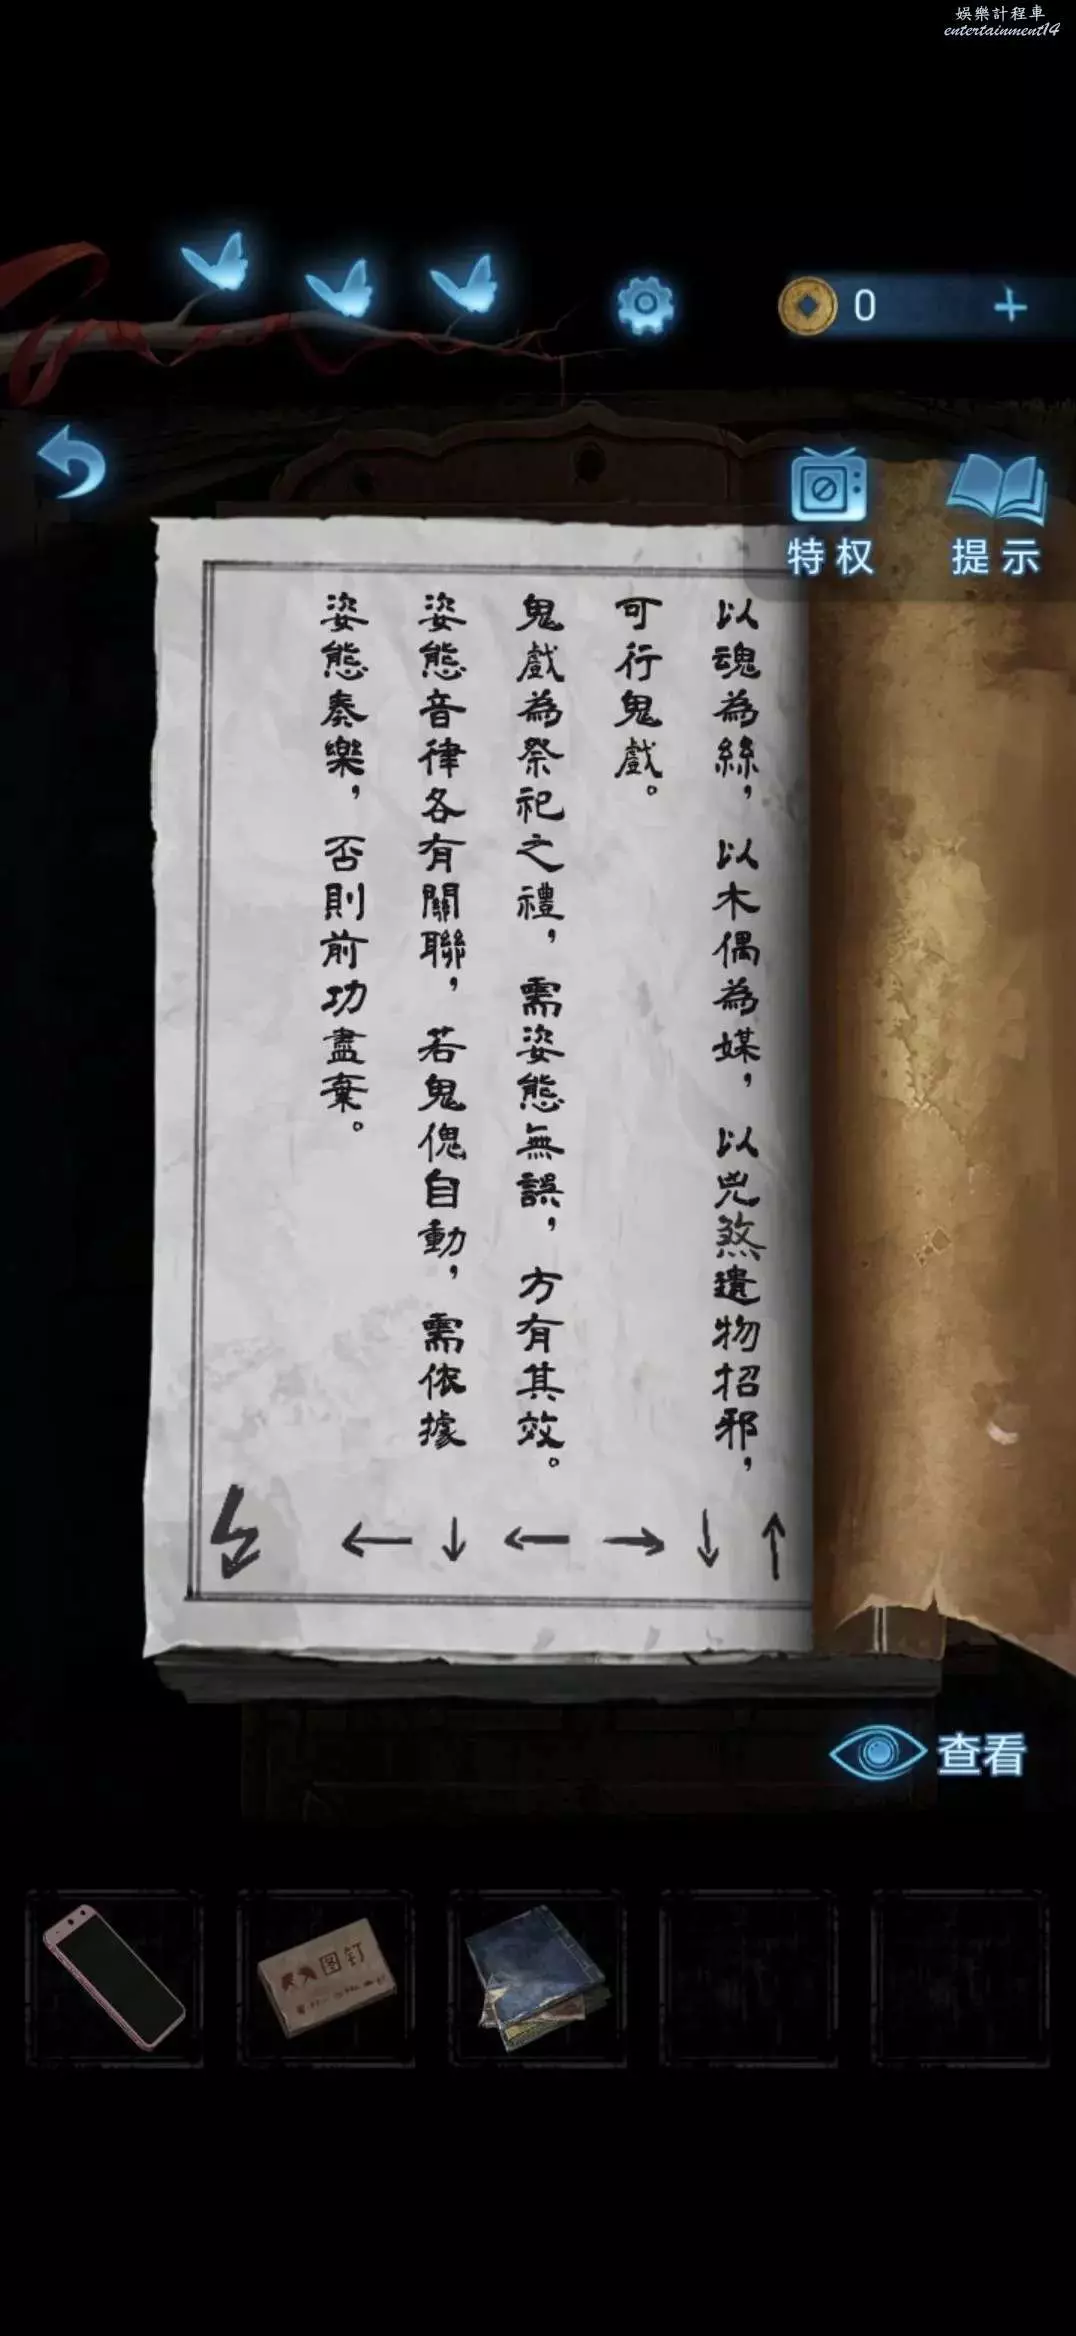 娛樂計程車
entertainment14
0
特权
提示
以魂為絲，以木偶為媒，以兇煞遺物招邪，
可行鬼戲。
鬼戲為祭祀之禮，需姿態無誤，方有其效。
姿態音律各有關聯，若鬼傀自動，需依據
姿態奏樂，否則前功盡棄。
↑ ↓ → ← ↓ ←
查看
图钉